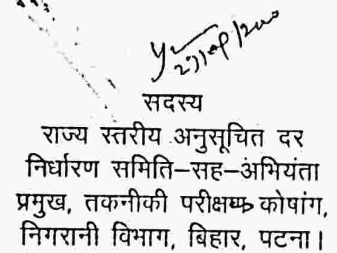 सदस्य
राज्य स्तरीय अनुसूचित दर
निर्धारण समिति–सह–अभियंता
प्रमुख, तकनीकी परीक्षण कोषांग,
निगरानी विभाग, बिहार, पटना।